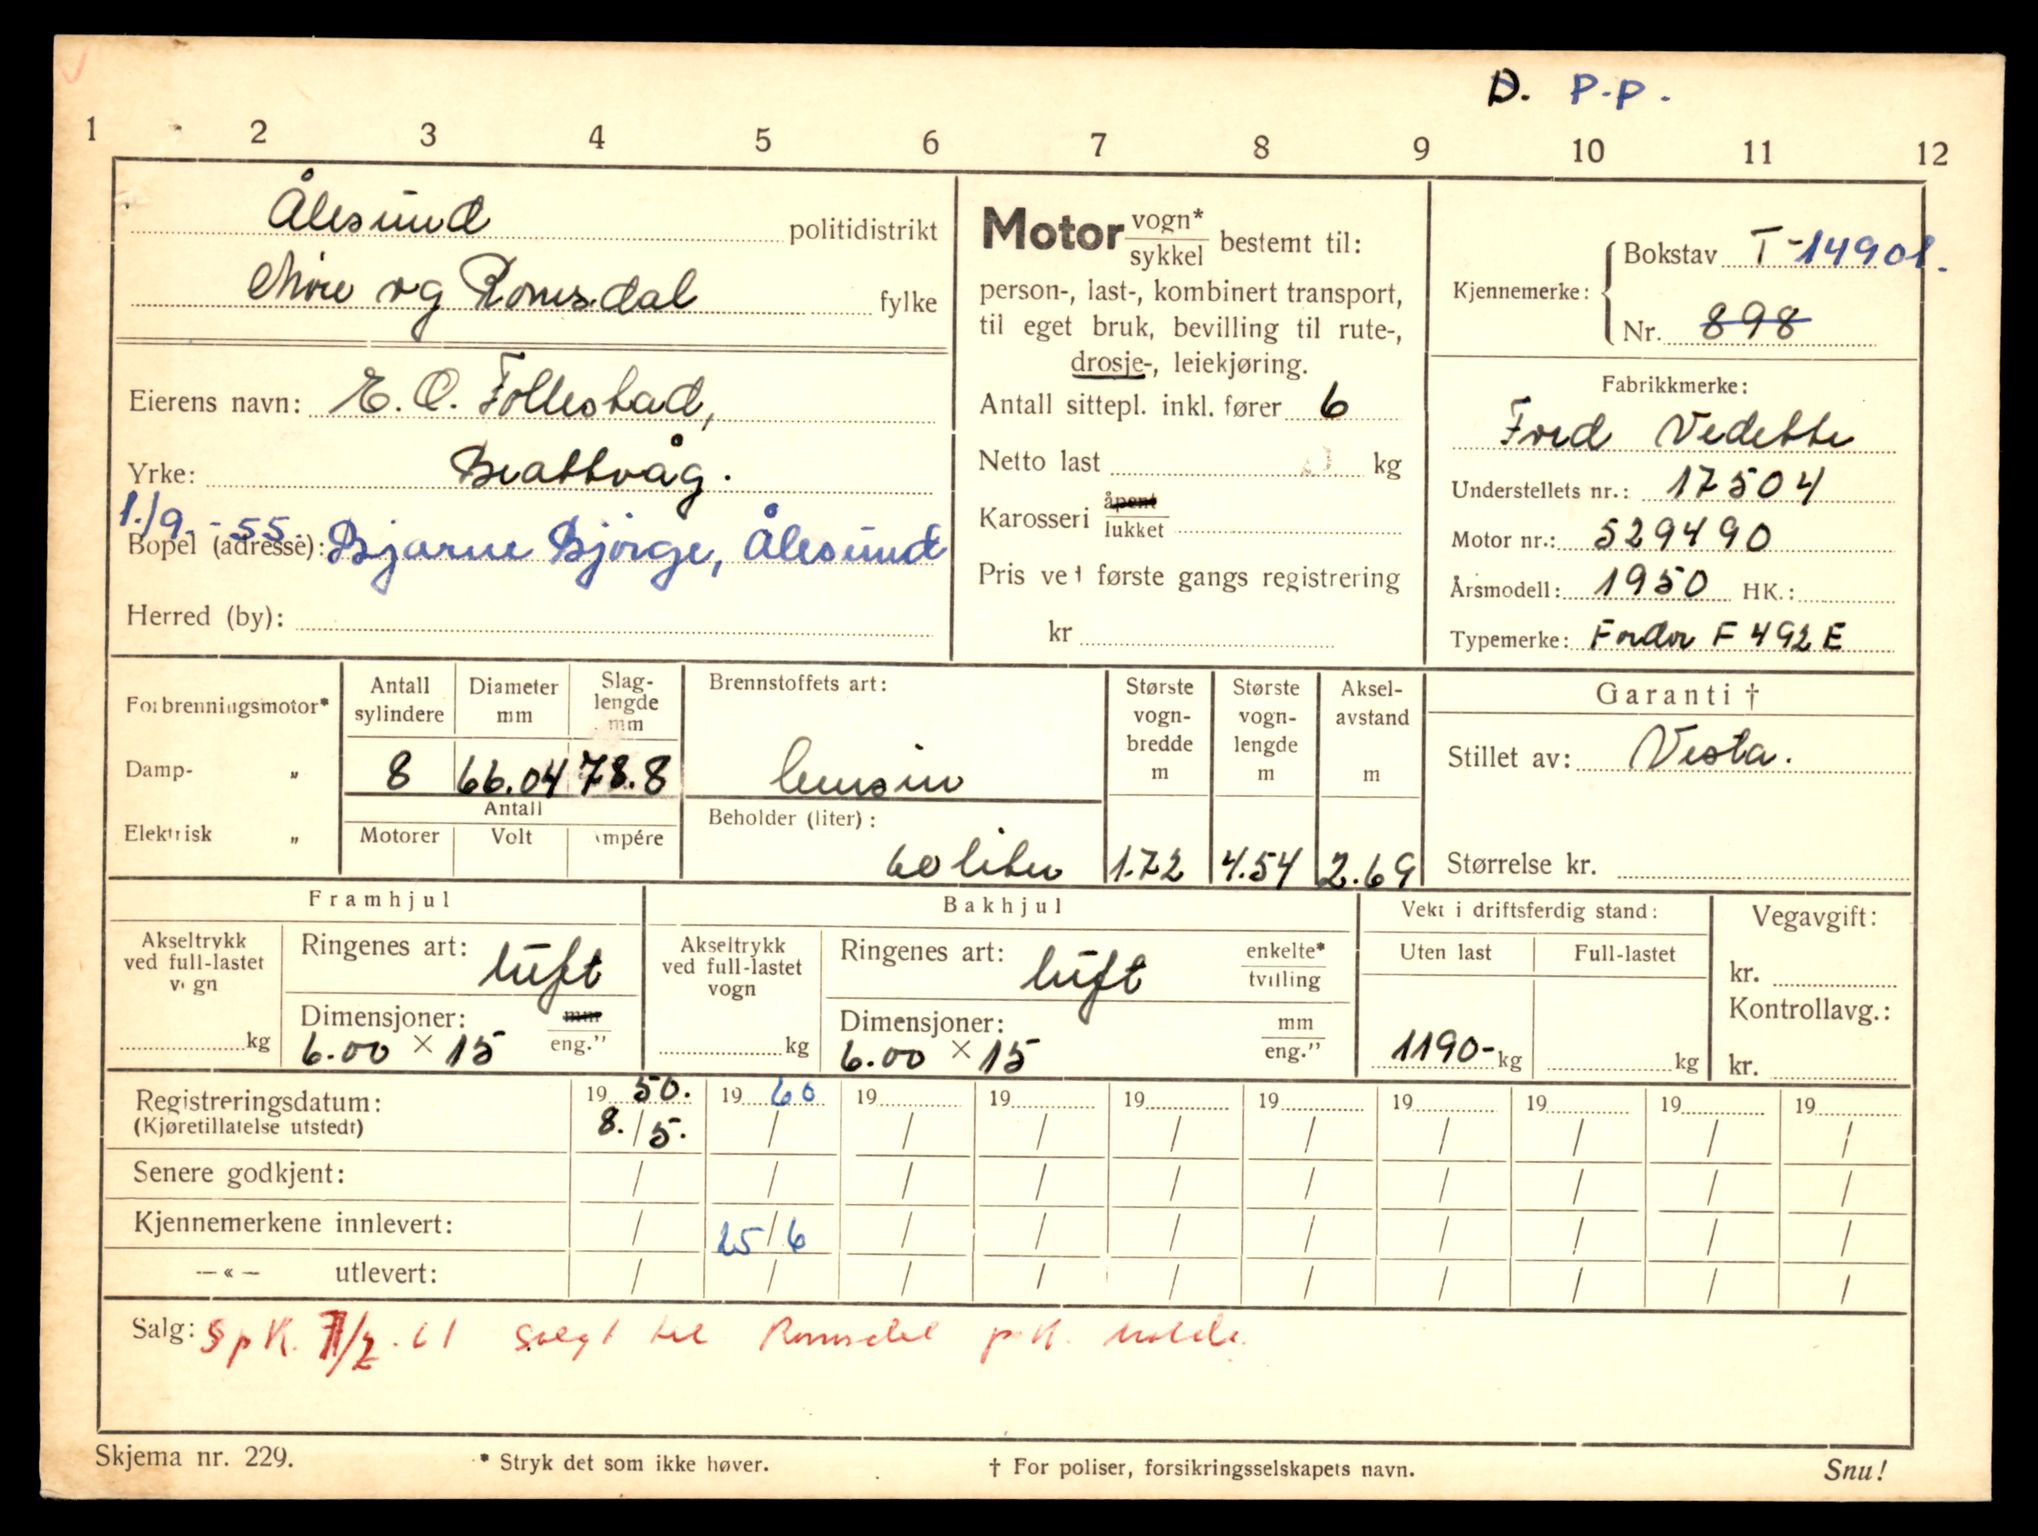 D. P.P.
1 2 3 4 5 6 7 8 9 10 11 12
Ålesund politidistrikt
Møre og Romsdal fylke
Eierens navn: E. O. Follestad,
Yrke: Brattvåg.
1./9. -55.
Bopel (adresse): Bjarne Bjørge, Ålesund
Herred (by):
Motor vogn* / sykkel bestemt til:
person-, last-, kombinert transport,
til eget bruk, bevilling til rute-,
drosje-, leiekjøring.
Antall sittepl. inkl. fører 6
Netto last kg
Karosseri åpent / lukket
Pris ved første gangs registrering
kr
Kjennemerke: Bokstav T-14901.
Nr. 898
Fabrikkmerke:
Ford Vedette
Understellets nr.: 17504
Motor nr.: 529490
Årsmodell: 1950 HK.:
Typemerke: Fordor F 492 E
Forbrenningsmotor*
Damp- „
Elektrisk „
Antall sylindere
8
Diameter mm
66.04
Slaglengde mm
78.8
Antall
Motorer Volt Ampére
Brennstoffets art:
bensin
Beholder (liter):
60 liter
Største vognbredde m
1.72
Største vognlengde m
4.54
Akselavstand m
2.69
Garanti †
Stillet av: Vesta.
Størrelse kr.
Framhjul
Akseltrykk ved full-lastet vogn
kg
Ringenes art: luft
Dimensjoner: mm / eng."
6.00 × 15
Bakhjul
Akseltrykk ved full-lastet vogn
kg
Ringenes art: luft enkelte* / tvilling
Dimensjoner: mm / eng."
6.00 × 15
Vekt i driftsferdig stand:
Uten last Full-lastet
1190- kg kg
Vegavgift:
kr.
Kontrollavg.:
kr.
Registreringsdatum: 19 50. 19 60 19 19 19 19 19 19 19 19
(Kjøretillatelse utstedt) 8./5. / / / / / / / / /
Senere godkjent: / / / / / / / / / /
Kjennemerkene innlevert: / 25/6 / / / / / / / /
— « — utlevert: / / / / / / / / / /
Salg: SpK. 7/2.61 solgt til Romsdal p.K. Molde.
Skjema nr. 229.
* Stryk det som ikke høver.
† For poliser, forsikringsselskapets navn.
Snu!